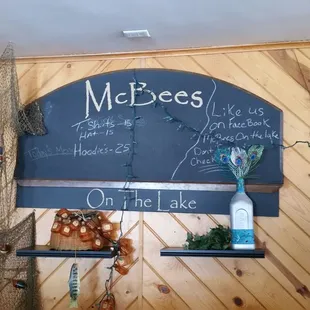 McBees
T. Shirts - 15
Hat - 15
Hoodie's - 25
Like us
on FaceBook
McBees On the lake
Don't
Chec
On The Lake